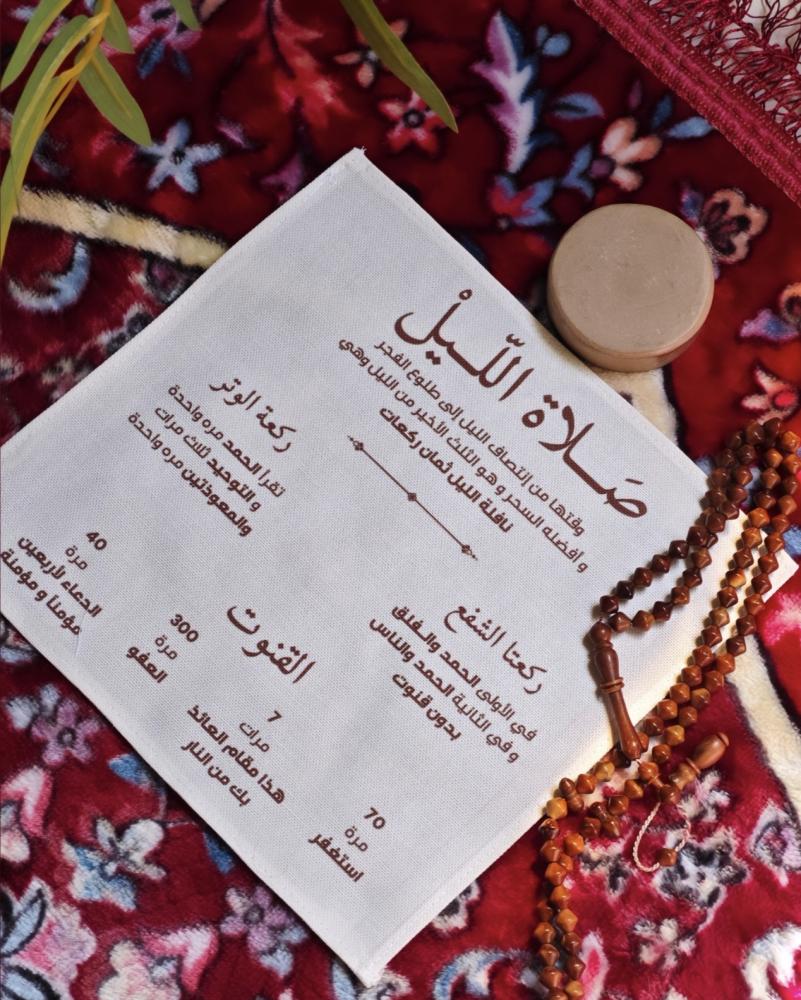 صَلاة اللّيلْ
وقتها من إنتصاف الليل إلى طلوع الفجر
و أفضله السحر و هو الثلث الأخير من الليل وهي
نافلة الليل ثمان ركعات
ركعتا الشفع
في الأولى الحمد والفلق
و في الثانية الحمد والناس
بدون قنوت
ركعة الوتر
تقرأ الحمد مره واحدة
و التوحيد ثلاث مرات
والمعوذتين مره واحدة
القنوت
70
مرة
استغفر
7
مرات
هذا مقام العائذ
بك من النار
300
مرة
العفو
40
مرة
الدعاء لأربعين
مؤمناً و مؤمنة